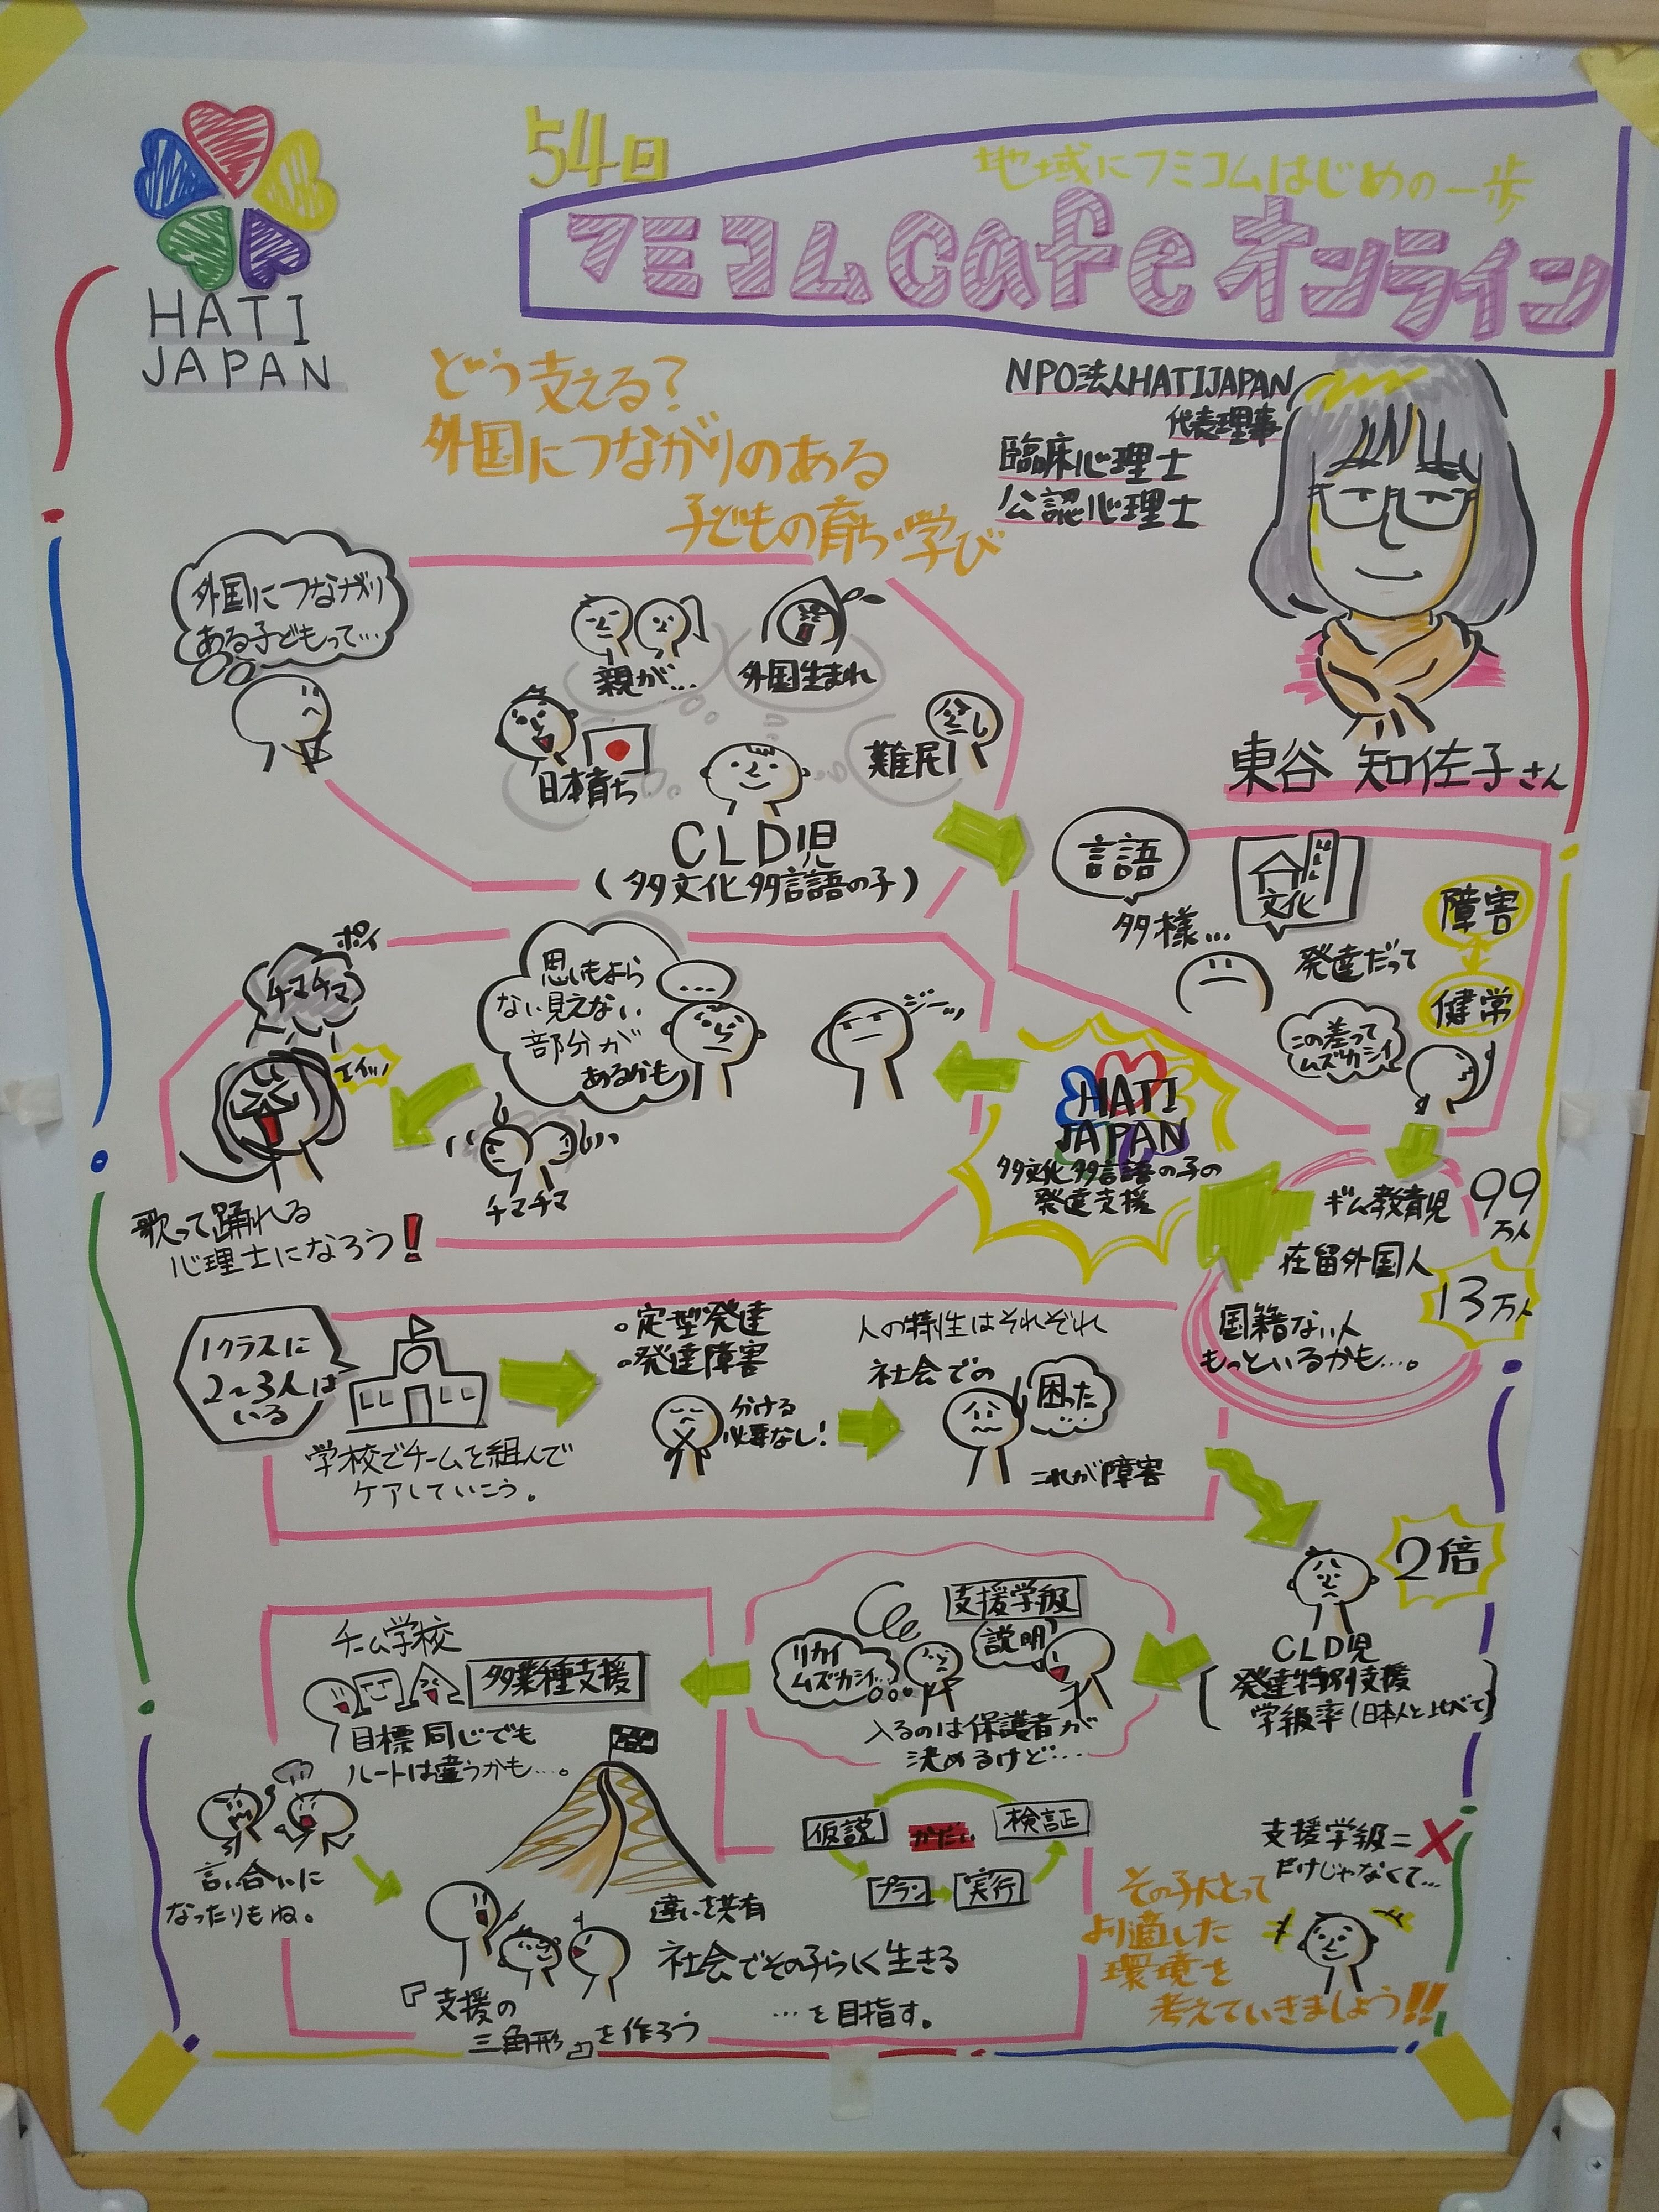 HATI
JAPAN
54回
地域にフミコムはじめの一歩
フミコムcafeオンライン
どう支える?
外国につながりのある
子どもの育ち・学び
NPO法人HATIJAPAN
代表理事
臨床心理士
公認心理士
東谷 知佐子さん
外国につながり
ある子どもって…
親が…
外国生まれ
日本育ち
難民
CLD児
(多文化多言語の子)
言語
文化
多様…
発達だって
障害
健常
この差って
ムズカシイ
ギム教育児 99
万人
在留外国人
13万人
国籍ない人
もっといるかも…。
HATI
JAPAN
多文化多言語の子の
発達支援
ジーッ
思いもよら
ない見えない
部分が
あるかも
…
チマチマ
ポイ
チマチマ
エイッ
歌って踊れる
心理士になろう!
1クラスに
2~3人は
いる
学校でチームを組んで
ケアしていこう。
・定型発達
・発達障害
分ける
必要なし!
人の特性はそれぞれ
社会での
困った
…
これが障害
2倍
CLD児
発達特別支援
学級率(日本人と比べて)
支援学級
説明
リカイ
ムズカシイ…
入るのは保護者が
決めるけど…
チーム学校
多業種支援
目標同じでも
ルートは違うかも…。
言い合いに
なったりもね。
違いを共有
仮説
かだい
検証
プラン
実行
社会でその子らしく生きる
…を目指す。
『支援の
三角形』を作ろう
支援学級=X
だけじゃなくて…
その子にとって
より適した
環境を
考えていきましょう!!